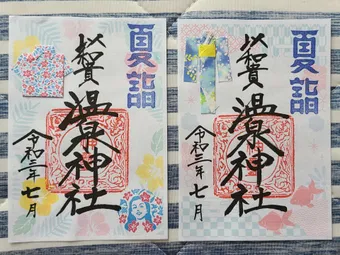 夏詣
温泉神社
令和三年七月
夏詣
温泉神社
令和三年七月